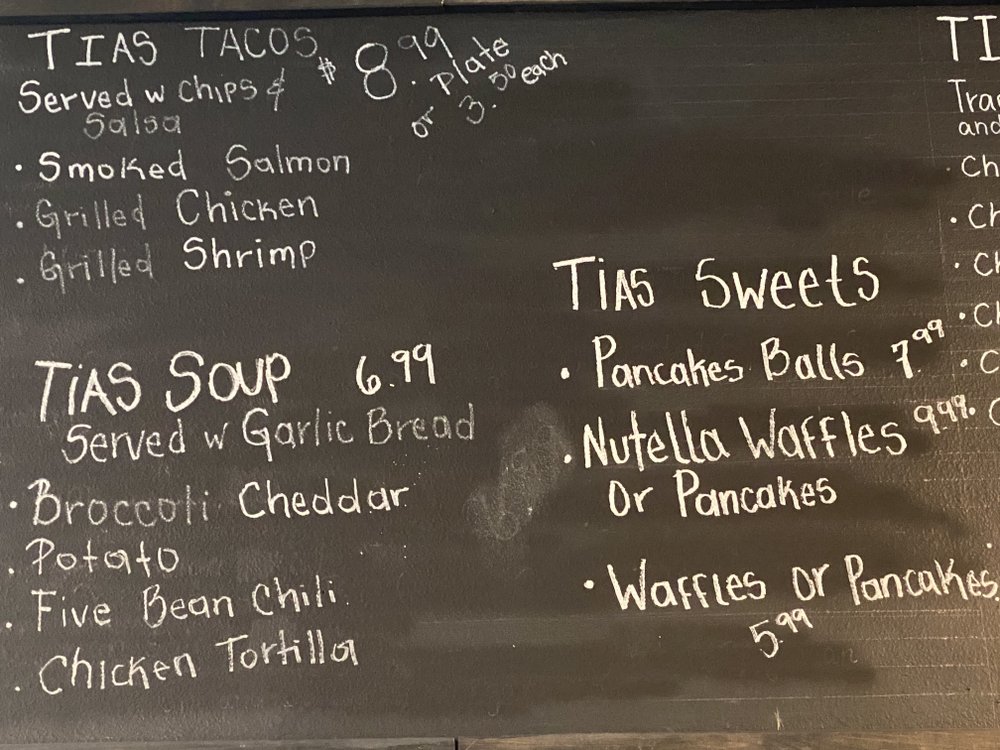 TIAS TACOS $8.99 Plate
or 3.50 each
Served w Chips &
Salsa
• Smoked Salmon
• Grilled Chicken
• Grilled Shrimp
TiAS Soup 6.99
Served w Garlic Bread
• Broccoli Cheddar
• Potato
• Five Bean Chili
• Chicken Tortilla
TiAS Sweets
• Pancakes Balls 7.99
• Nutella Waffles 9.99
Or Pancakes
• Waffles or Pancakes
5.99
and